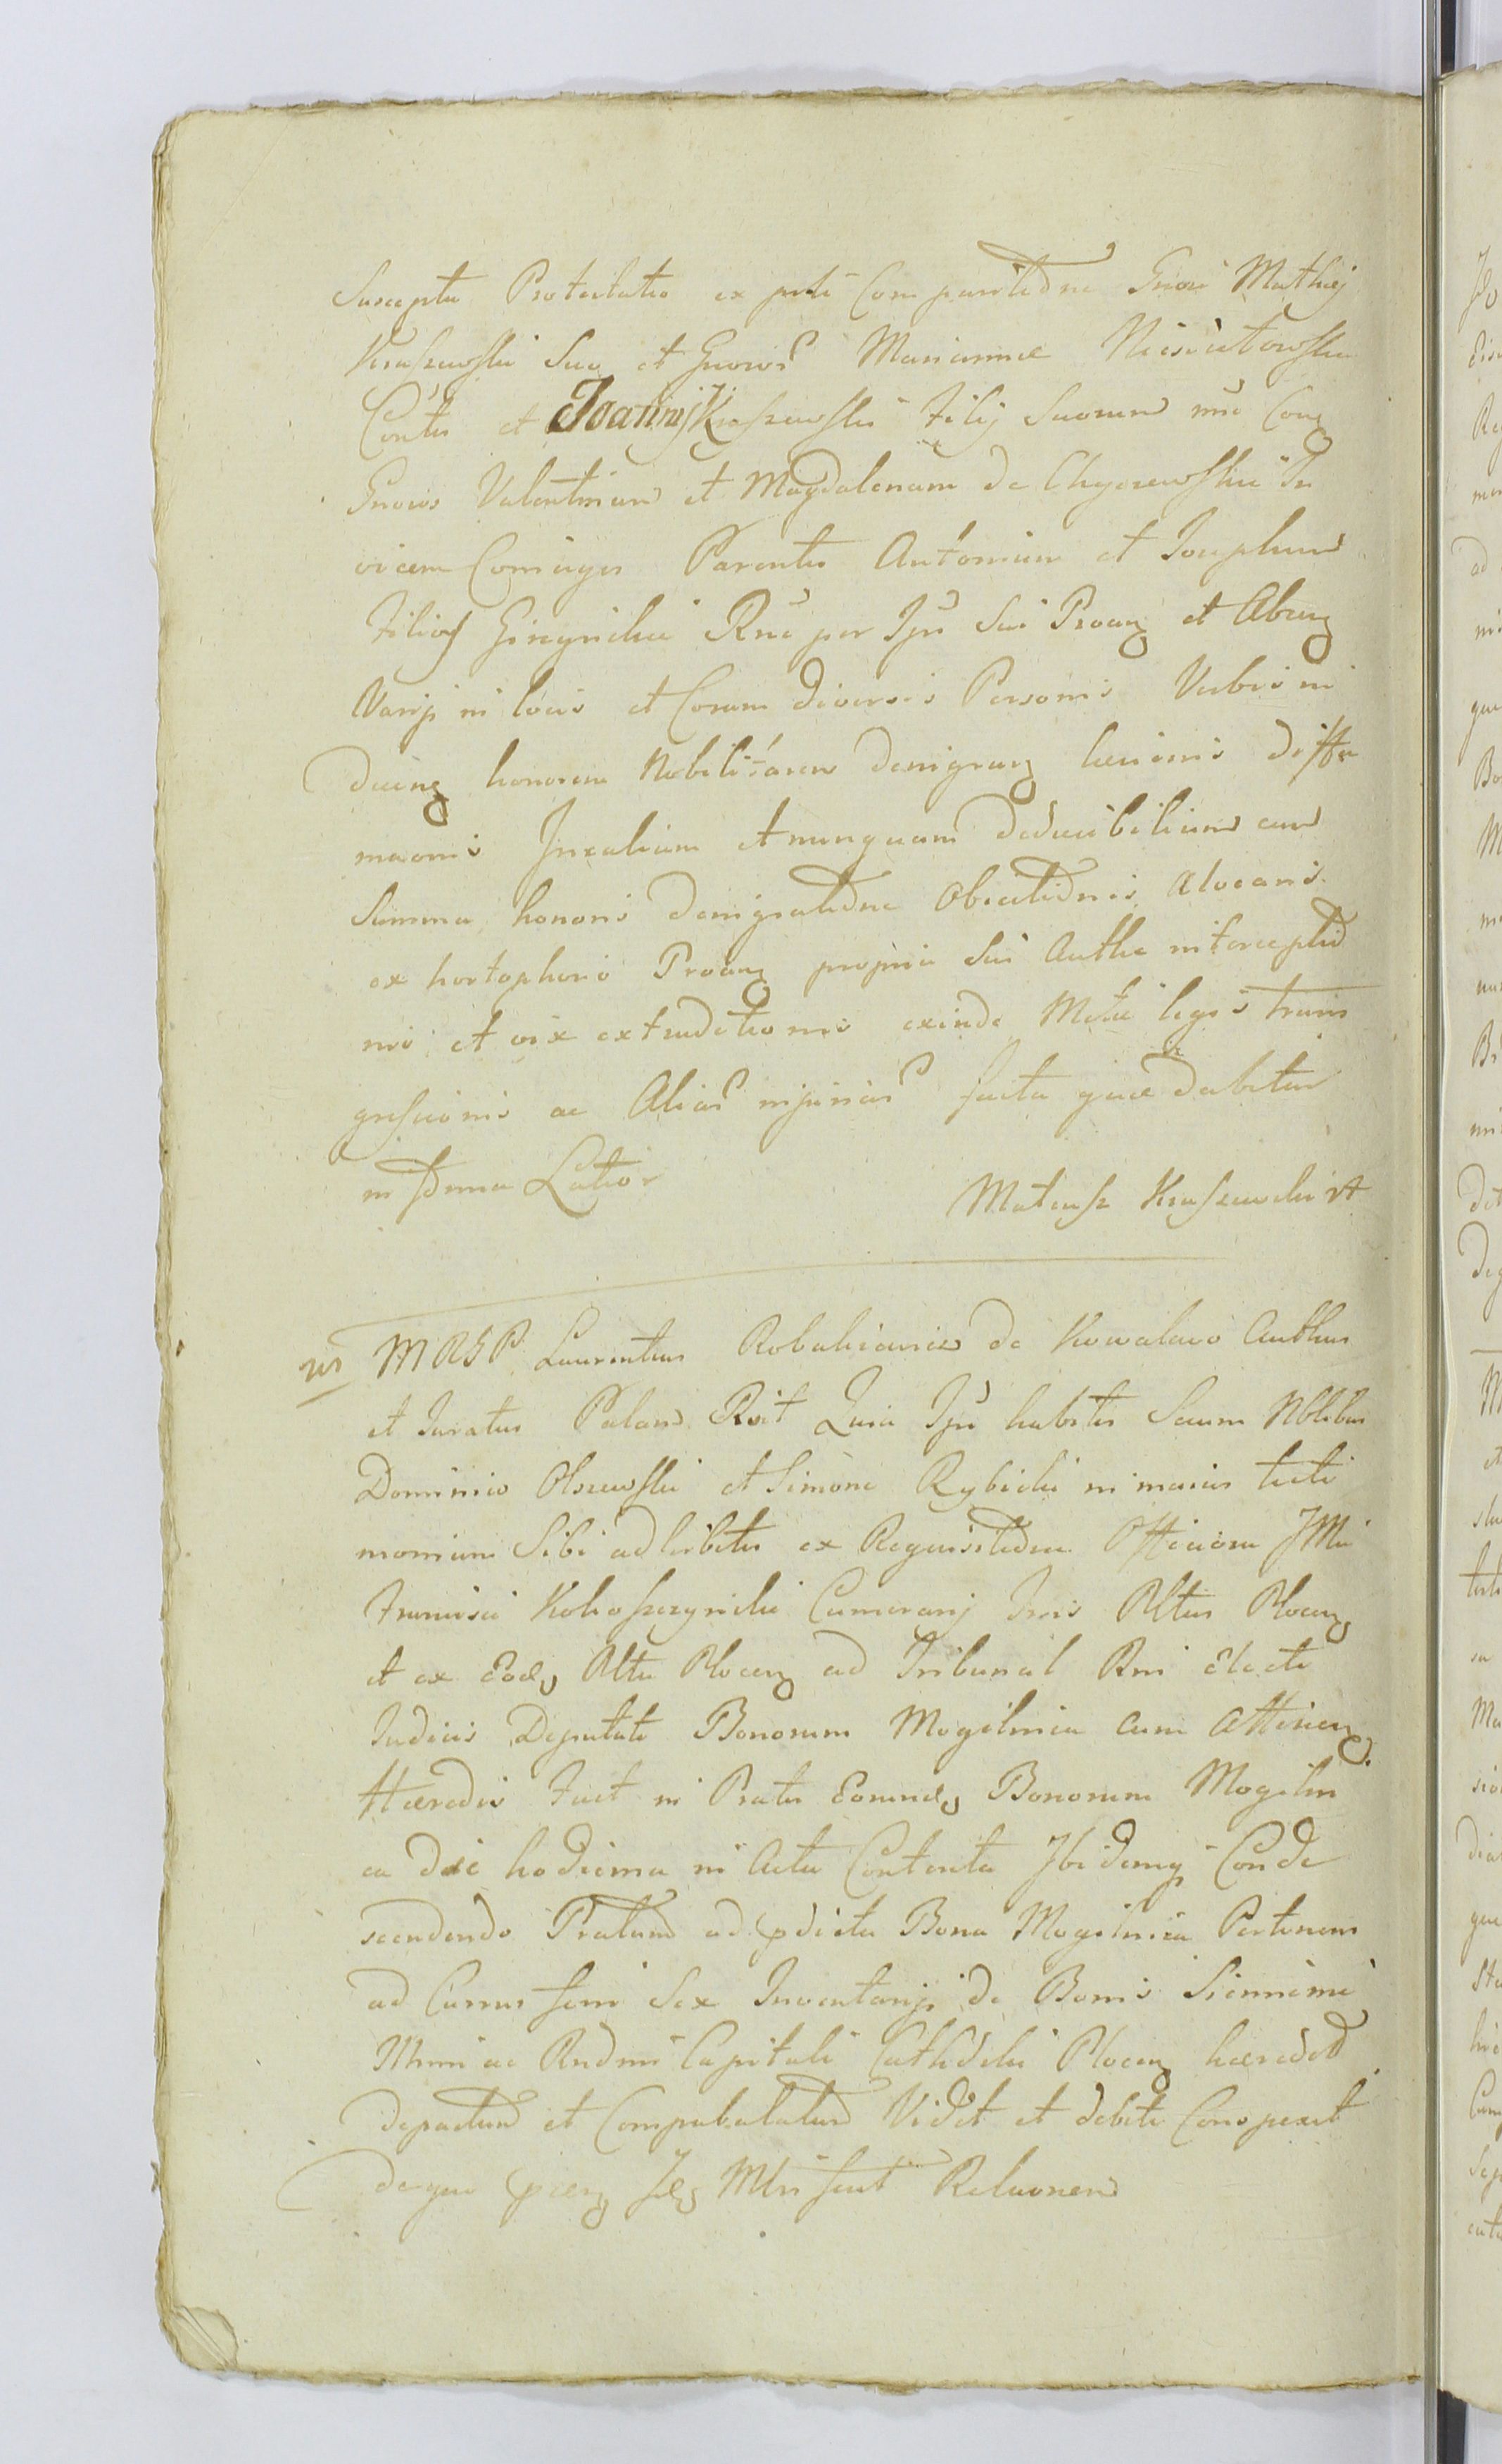 Suscepta Protestatio ex parte Comparitione Gnosi Mathiej
Kraszewski Suo et Gnosis Mariannae Niesciutowska
Contis et Joannis Kraszewski Filij Suorum nne Conz
Gnosos Valentinum et Magdalenam de Chyczewskie In
vicem Coniuges Parentes Antonium et Josephum
Filios Girzynskie Rne per Ipsi Sui Proanz et Abinz
Varijs in locis et Coram diversis Personis Verbis in
decenz honorem Nobilitarem denigranz laesionis diffa
maonis Jnxalium et nunquam deducibilium cum
Summa honoris denigratione Obiectionis Alocaonis
ex hortophorio Proanz propria Sui Autthe interceptio
nis et vix extraditionis exinde Metae legis trans
gressionis ac Alias injurias facta quae dabitur
in forma Latior
Mateusz Kraszewski
MRGP Laurentius Robakiewicz de Kowalewo Autthus
et Juratus Palam Rvit Quia Ipse habitis Secum Nblibus
Dominico Olszewski et Simone Rybicki in maius testi
monium Sibi adhibitis ex Requisitione Officiosa JMci
Francisci Kokoszczynski Camerarij Tris Pltus Plocenz
et ex Eodez Pltu Plocenz ad Tribunal Rni Electi
Judicis Deputati Bonorum Mogilnica cum Attinenz
Haeredis Fuit in Pratis Eorundez Bonorum Mogilni
ca die hodierna in Actu Contenta Ibidemq Conde
scendendo Pratum ad pdicta Bona Mogilnica Pertinens
ad Currus feni Sex Inventarijs de Bonis Siennimi
Mmi ac Rndmi Capituli Cathedelis Plocenz haeredit
depactum et Compabulatum Vidit et debite Conspexit
de quo praenz Jdez Mtri fecit Relaonem